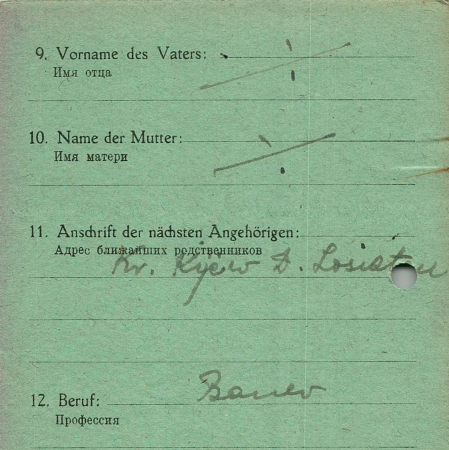 9. Vorname des Vaters:
Имя отца
10. Name der Mutter:
Имя матери
11. Anschrift der nächsten Angehörigen:
Адрес ближайших родственников
Kr. Kijew D.
12. Beruf: Bauer
Профессия